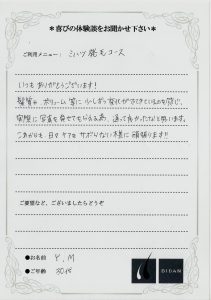 ＊喜びの体験談をお聞かせ下さい＊
ご利用メニュー：ミハツ脱毛コース
いつもありがとうございます！
髪質や ボリューム 等に少しずつ変化がでてきているのを感じ、
実際に写真を見せてもらえる為、通って良かったなと思います。
これからも 日々ケアをサボらない様に頑張ります!!
ご要望など、ございましたらどうぞ
●お名前 Y.M
●ご年齢 30代
BIDAN